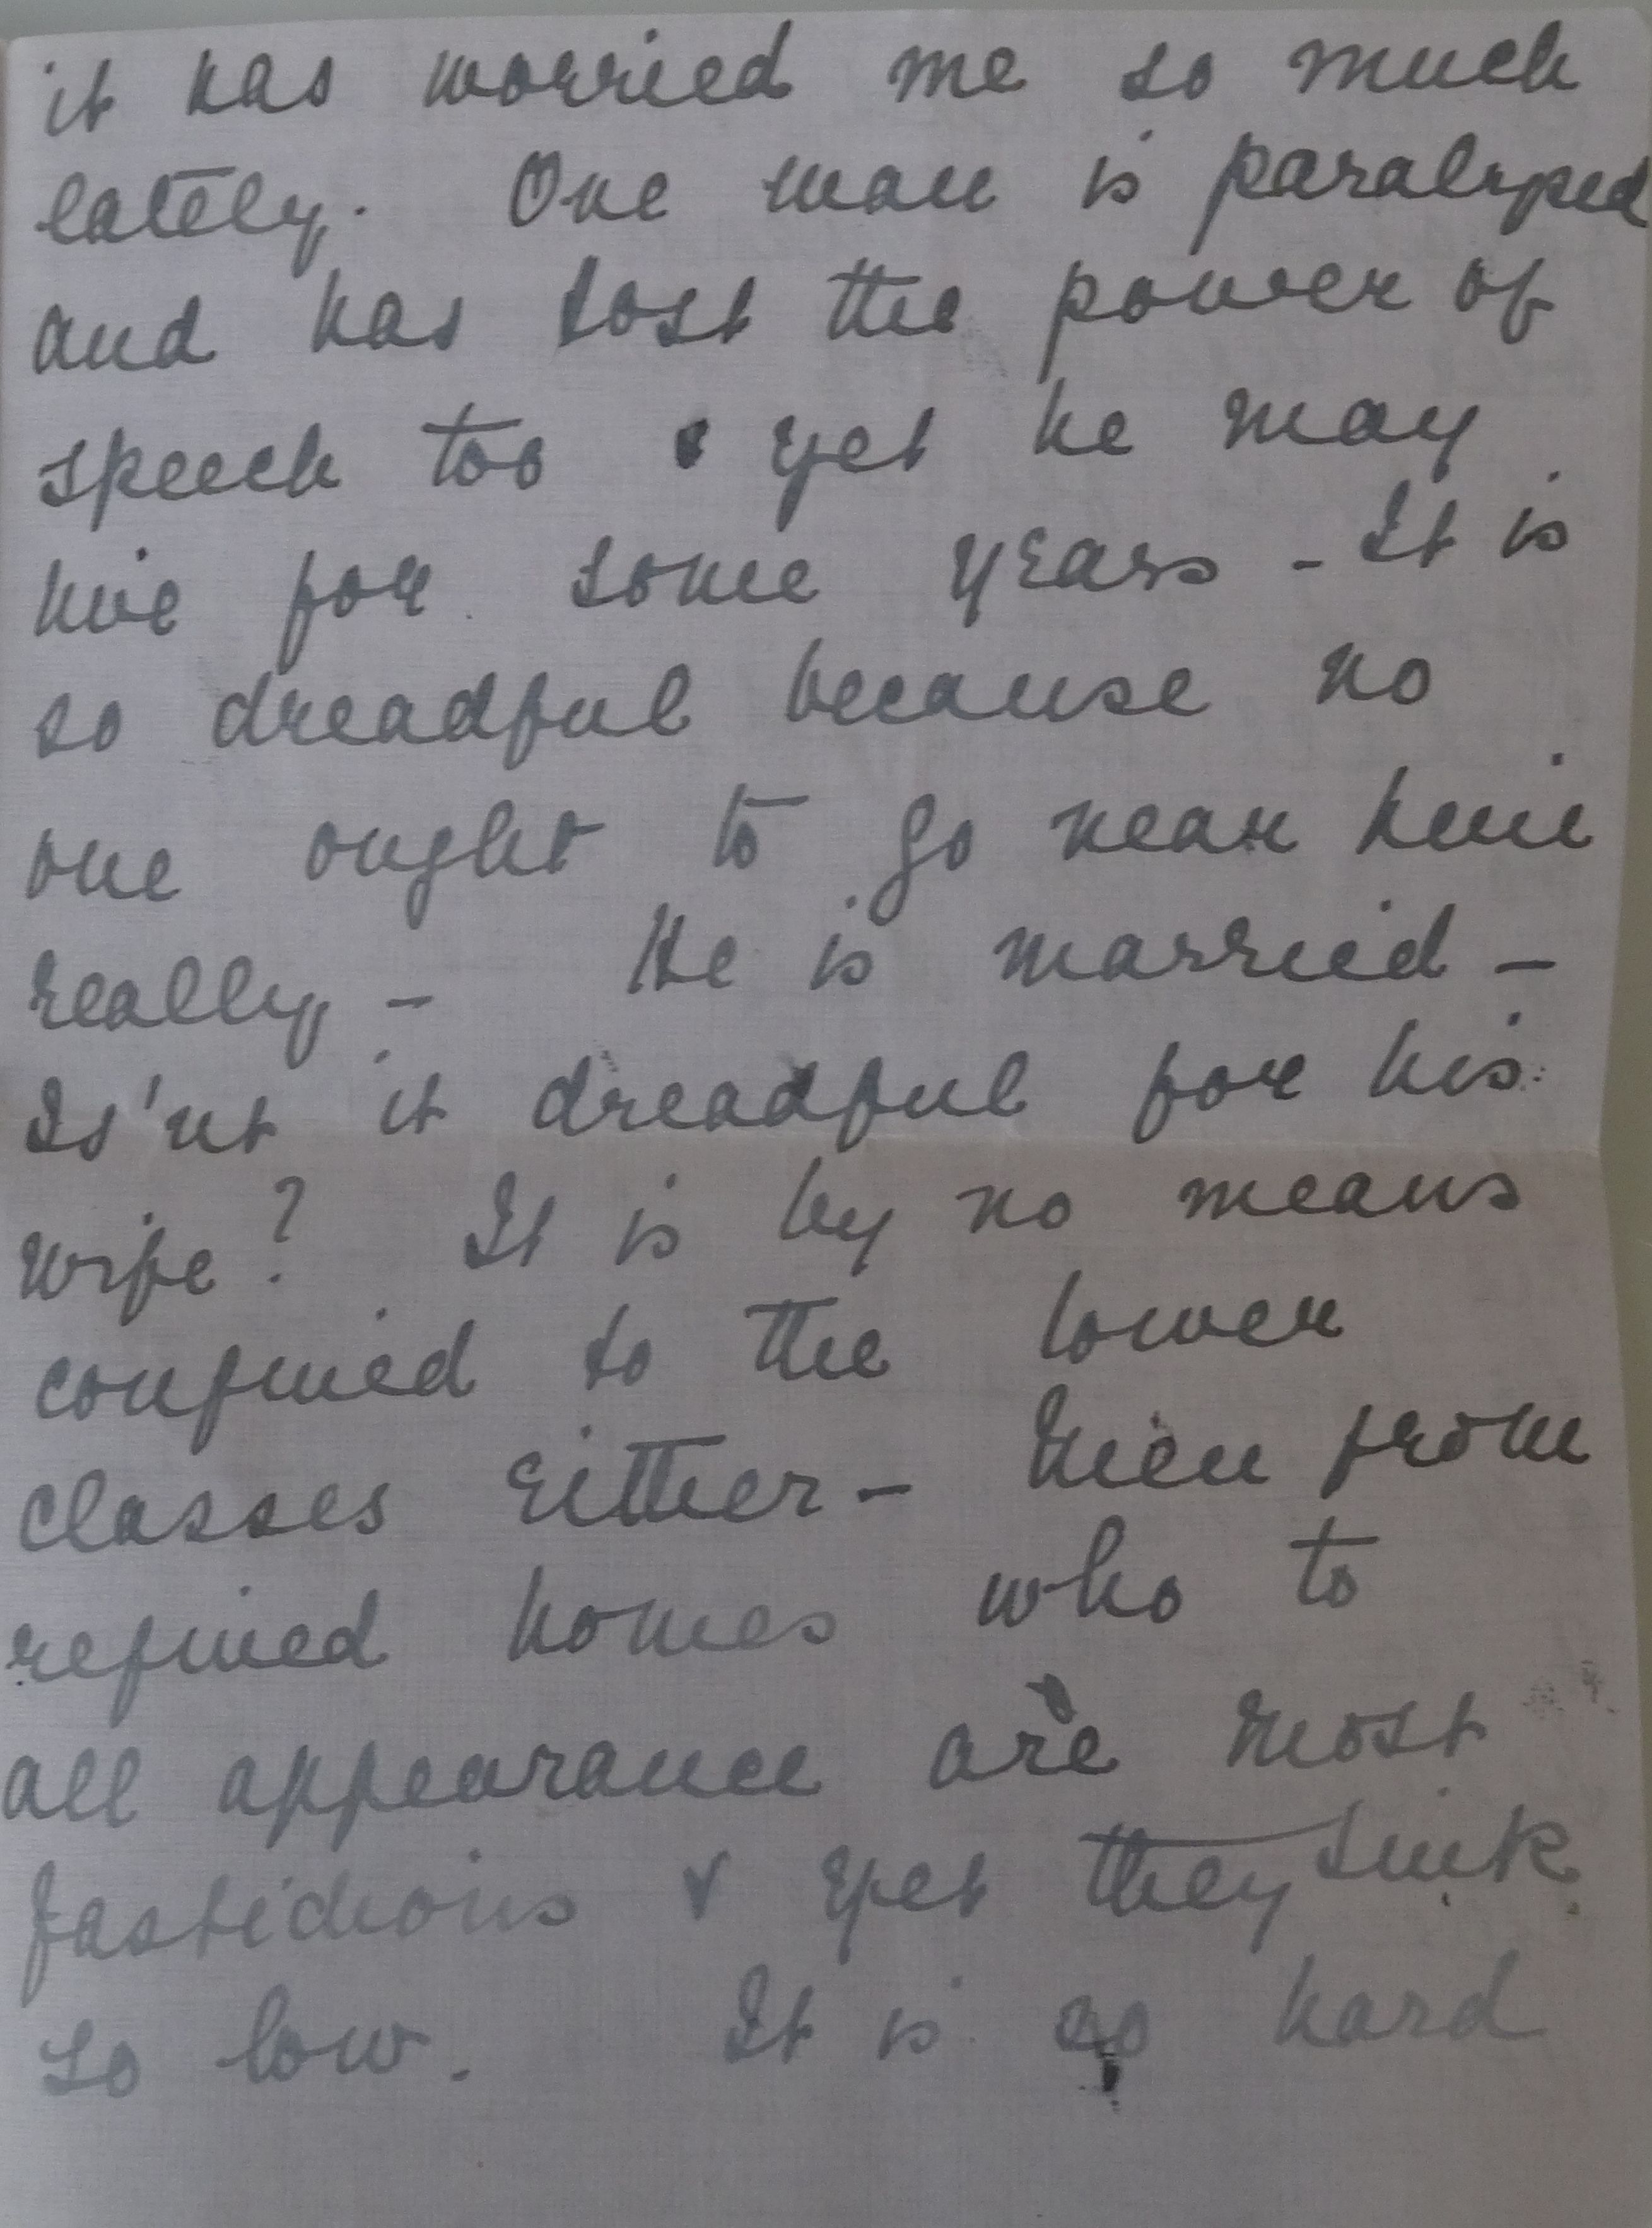 it has worried me so much
lately. One man is paralysed
and has lost the power of
speech too & yet he may
live for some years - It is
so dreadful because no
one ought to go near him
really - He is married -
Is'nt it dreadful for his
wife? It is by no means
confined to the lower
classes either - Men from
refined homes who to
all appearance are most
fastidious & yet they sink
so low. It is so hard